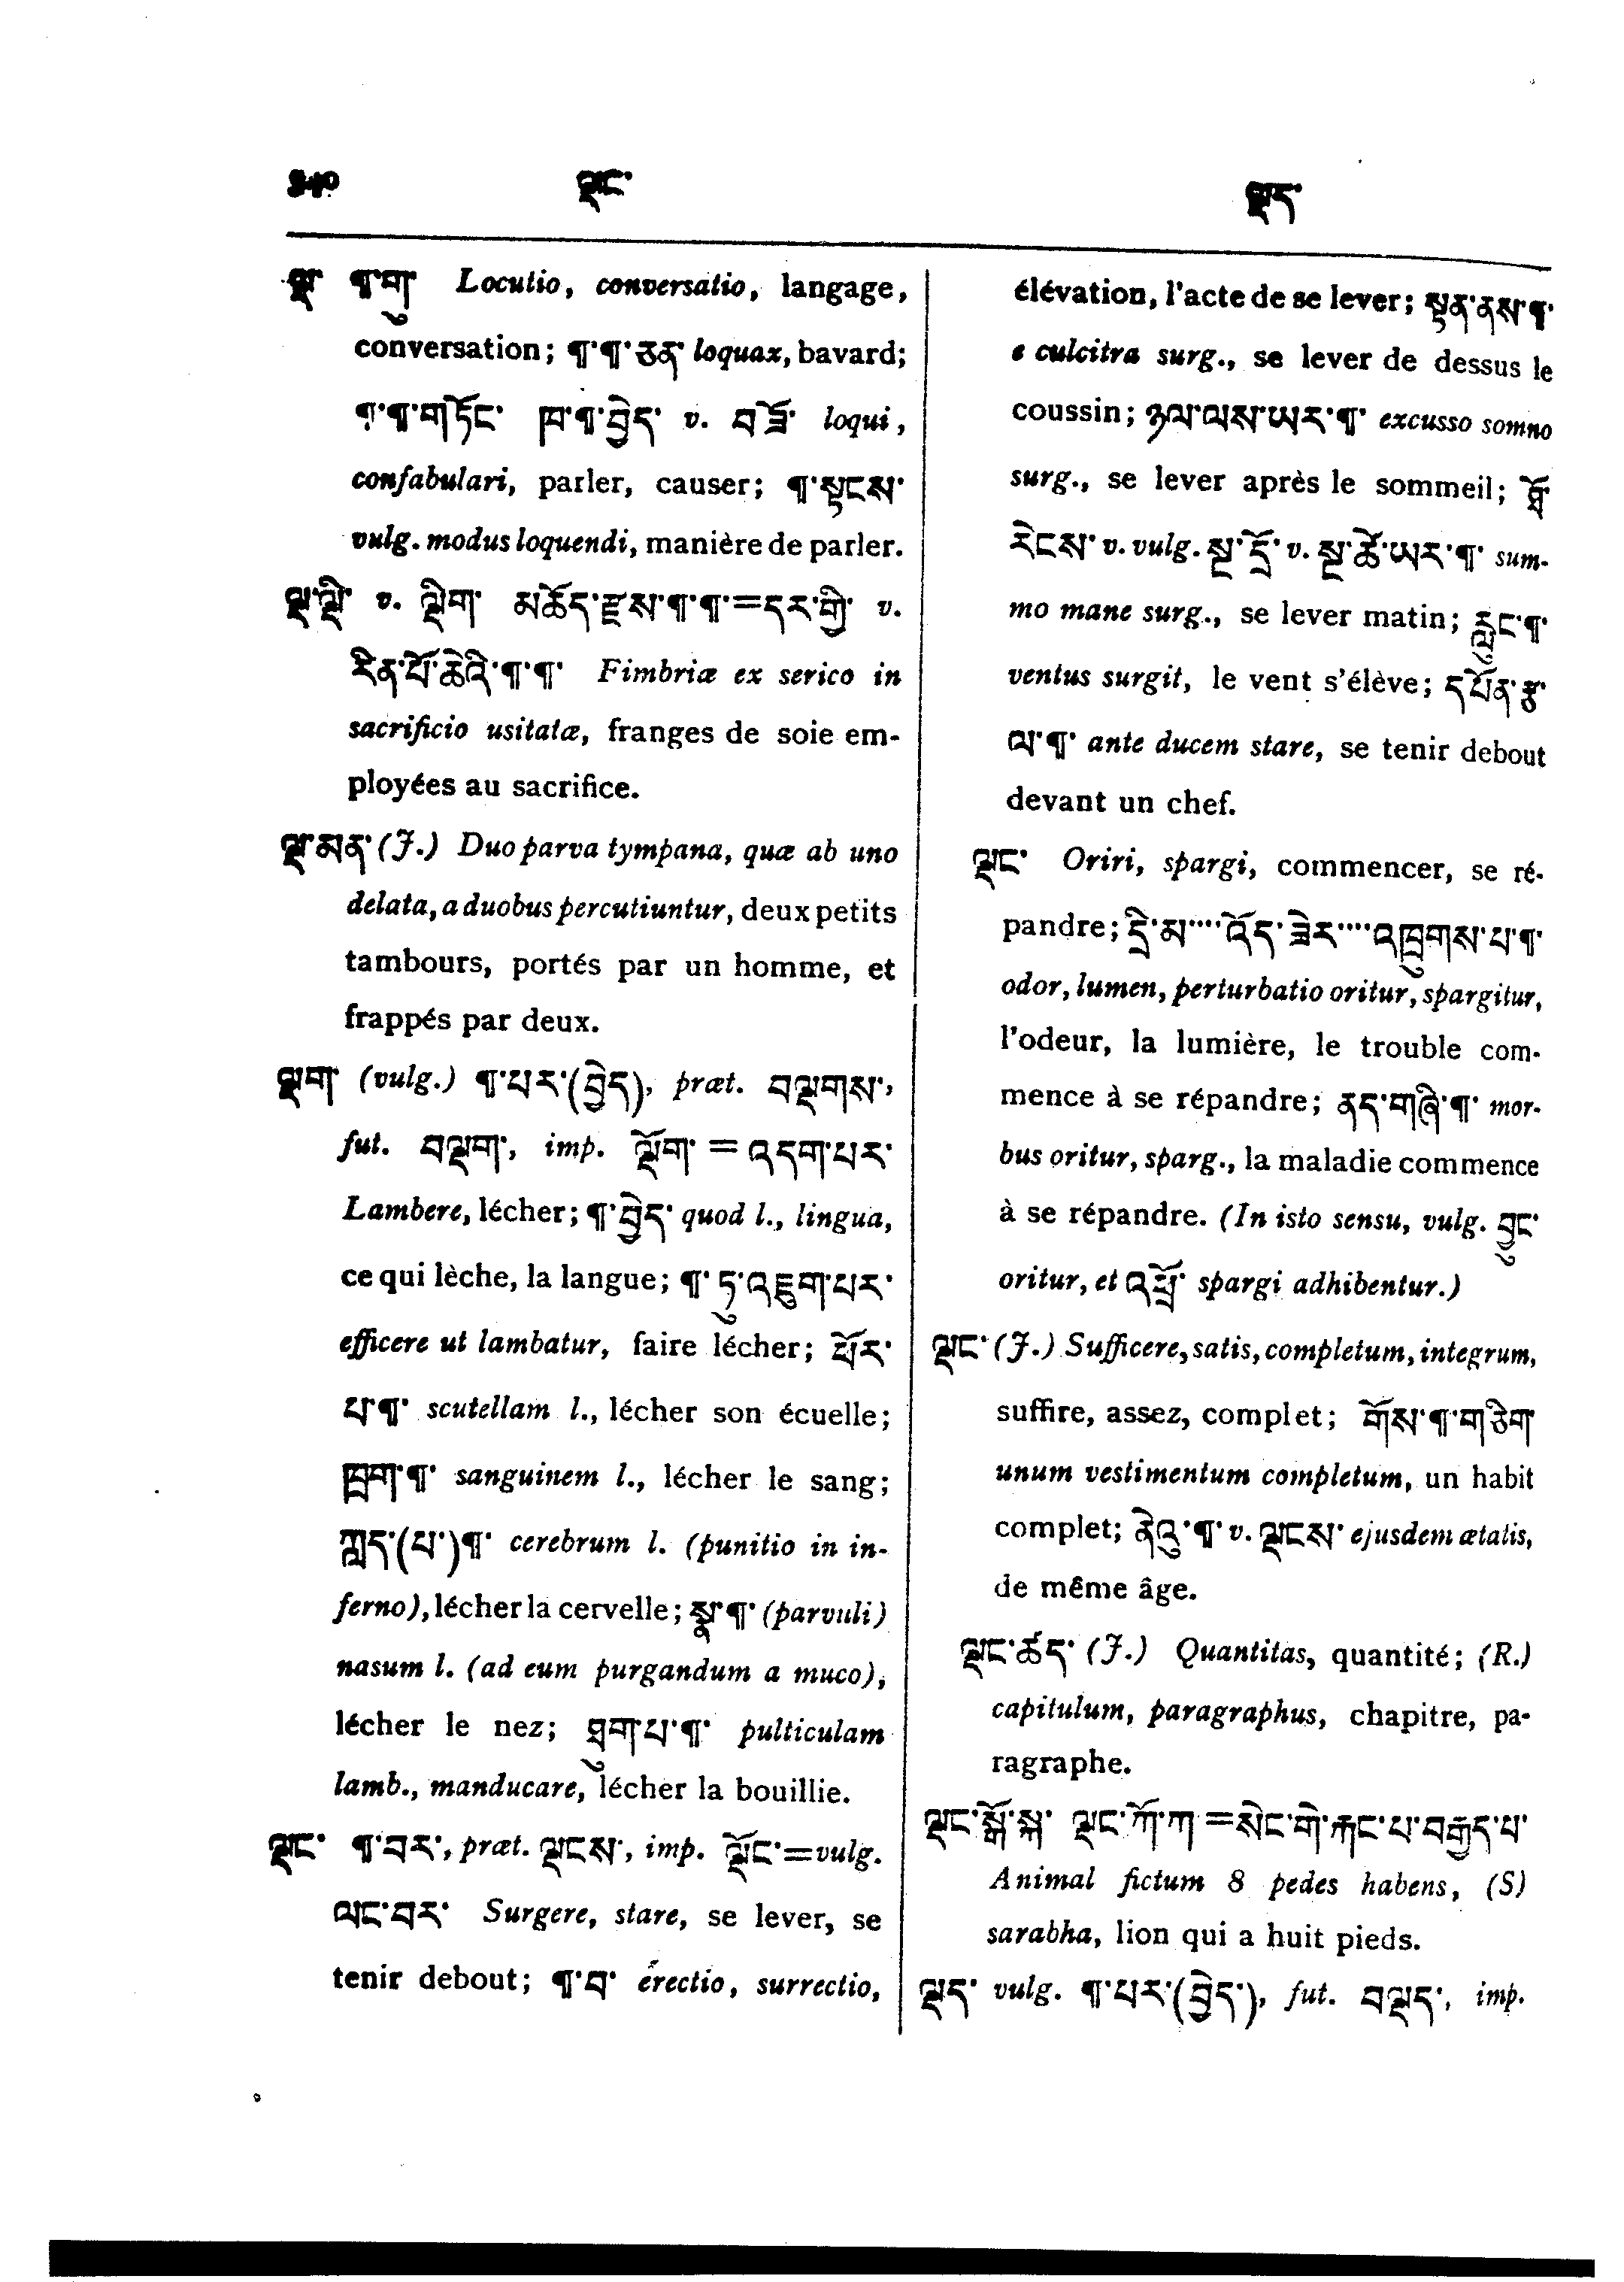 340 ལྡང་ ལྡད་
ལྡ་ ¶་གུ་ Locutio, conversatio, langage,
conversation; ¶་¶་ཅན་ loquax, bavard;
¶་¶་གཏོང་ ཁ་¶་བྱེད་ v. བཟོ་ loqui,
confabulari, parler, causer; ¶་སྟངས་
vulg. modus loquendi, manière de parler.
ལྡ་ལྡི་ v. ལྡིག་ མཆོད་རྫས་¶་¶་=དར་གྱི་ v.
རིན་པོ་ཆེའི་¶་¶་ Fimbriæ ex serico in
sacrificio usitatæ, franges de soie em-
ployées au sacrifice.
ལྡ་མན་ (J.) Duo parva tympana, quæ ab uno
delata, a duobus percutiuntur, deux petits
tambours, portés par un homme, et
frappés par deux.
ལྡག་ (vulg.) ¶་པར་(བྱེད), præt. བལྡགས་,
fut. བལྡག་, imp. ལྡོག་ = འདག་པར་
Lambere, lécher; ¶་བྱེད་ quod l., lingua,
ce qui lèche, la langue; ¶་ཏུ་འཇུག་པར་
efficere ut lambatur, faire lécher; ཕོར་
པ་¶་ scutellam l., lécher son écuelle;
ཁྲག་¶་ sanguinem l., lécher le sang;
ཀླད་(པ་)¶་ cerebrum l. (punitio in in-
ferno), lécher la cervelle; སྣ་¶་ (parvuli)
nasum l. (ad eum purgandum a muco),
lécher le nez; ཐུག་པ་¶་ pulticulam
lamb., manducare, lécher la bouillie.
ལྡང་ ¶་བར་, præt. ལྡངས་, imp. ལྡོང་=vulg.
ལང་བར་ Surgere, stare, se lever, se
tenir debout; ¶་བ་ érectio, surrectio,
élévation, l'acte de se lever; སྟན་ནས་¶་
e culcitra surg., se lever de dessus le
coussin; ཉལ་ལས་ཡར་¶་ excusso somno
surg., se lever après le sommeil; ཐོ་
རེངས་ v. vulg. སྔ་དྲོ་ v. སྔ་ཚེ་ཡར་¶་ sum-
mo mane surg., se lever matin; རླུང་¶་
ventus surgit, le vent s'élève; དཔོན་རྩ་
ལ་¶་ ante ducem stare, se tenir debout
devant un chef.
ལྡང་ Oriri, spargi, commencer, se ré-
pandre; དྲི་མ་···་འོད་ཟེར་···་འཁྲུགས་པ་¶་
odor, lumen, perturbatio oritur, spargitur,
l'odeur, la lumière, le trouble com-
mence à se répandre; ནད་གཞི་¶་ mor-
bus oritur, sparg., la maladie commence
à se répandre. (In isto sensu, vulg. བྱུང་
oritur, et འཕྲོ་ spargi adhibentur.)
ལྡང་ (J.) Sufficere, satis, completum, integrum,
suffire, assez, complet; གོས་¶་གཅིག་
unum vestimentum completum, un habit
complet; ནེའུ་¶་ v. ལྡངས་ ejusdem ætatis,
de même âge.
ལྡང་ཚད་ (J.) Quantitas, quantité; (R.)
capitulum, paragraphus, chapitre, pa-
ragraphe.
ལྡང་སྒོ་སྐ་ ལྡང་ཀོ་ཀ =སེང་གེ་རྐང་པ་བརྒྱད་པ་
Animal fictum 8 pedes habens, (S)
sarabha, lion qui a huit pieds.
ལྡད་ vulg. ¶་པར་(བྱེད་), fut. བལྡད་, imp.